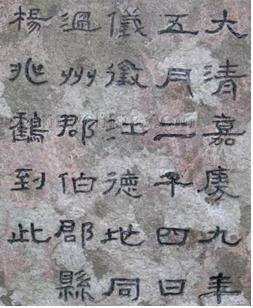 大清嘉慶九年
五月二十四日
儀徵江德地同
過州郡伯郡縣
楊兆鶴到此